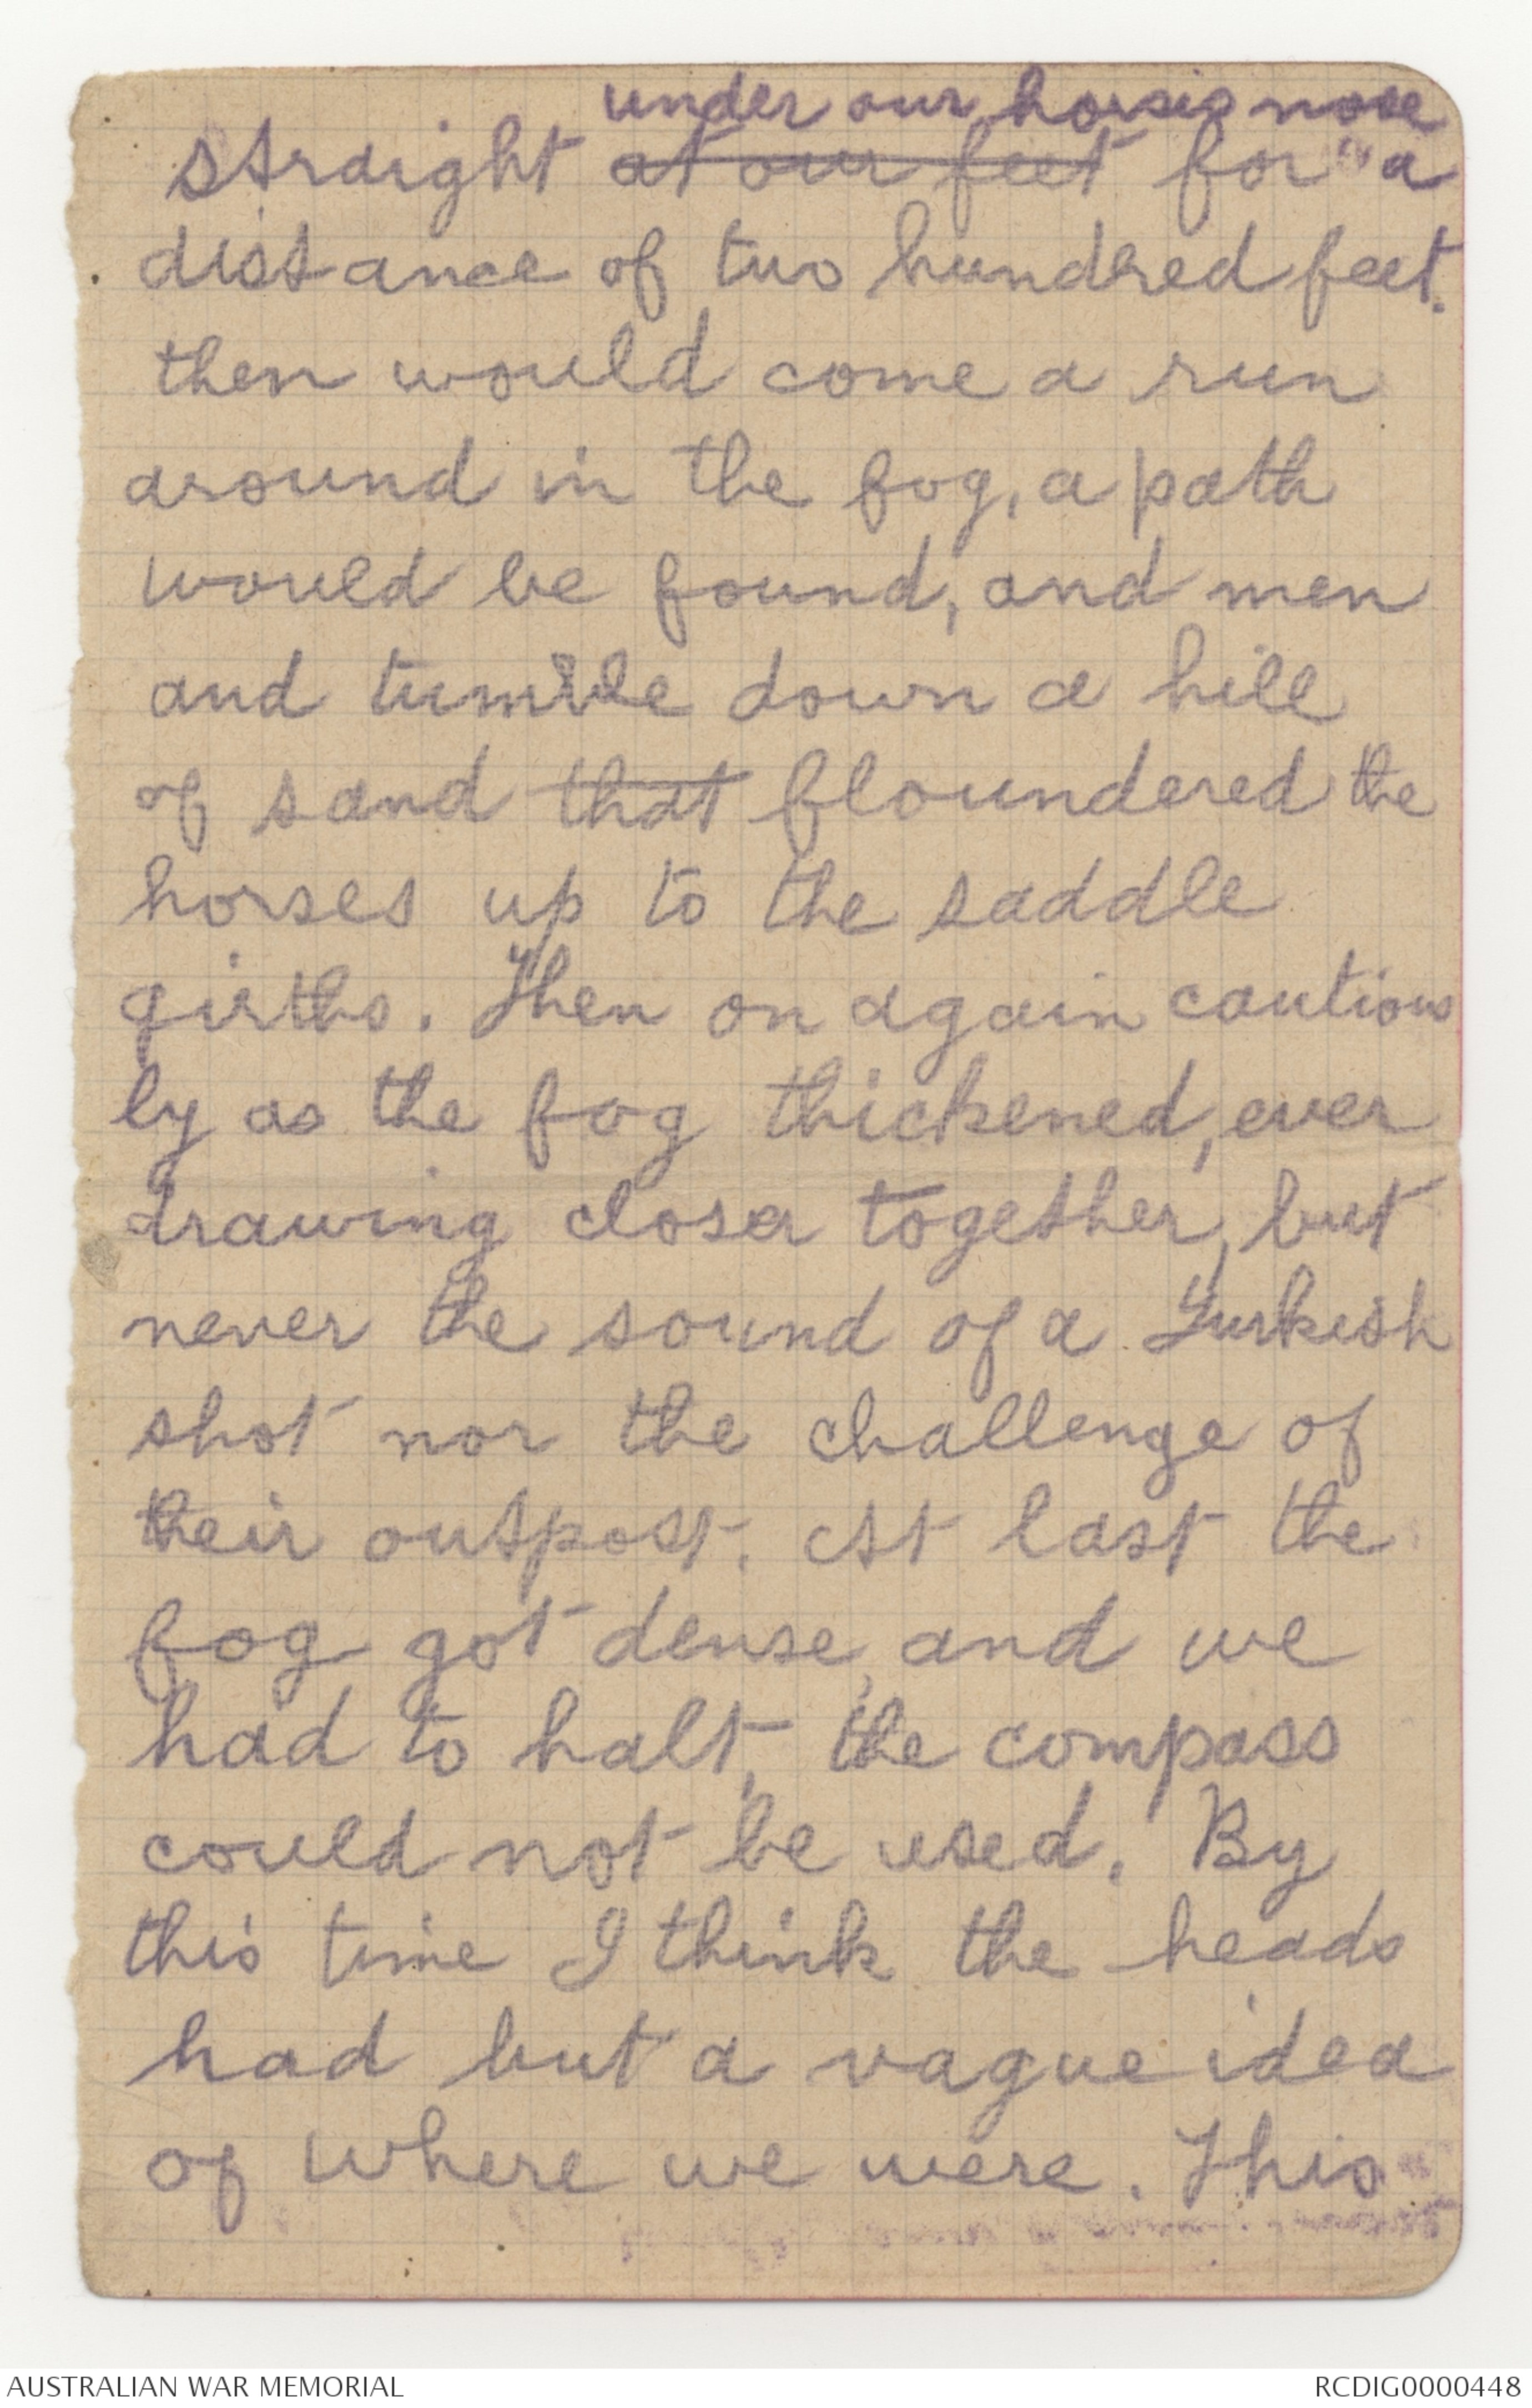 under our horses nose
straight at our feet for a
distance of two hundred feet.
then would come a run
around in the fog, a path
would be found, and men
and tumble down a hill
of sand that floundered the
horses up to the saddle
girths. Then on again cautious
ly as the fog thickened, ever
drawing closer together, but
never the sound of a Turkish
shot nor the challenge of
their outpost. At last the
fog got dense, and we
had to halt, the compass
could not be used. By
this time I think the heads
had but a vague idea
of where we were. This
AUSTRALIAN WAR MEMORIAL
RCDIG0000448